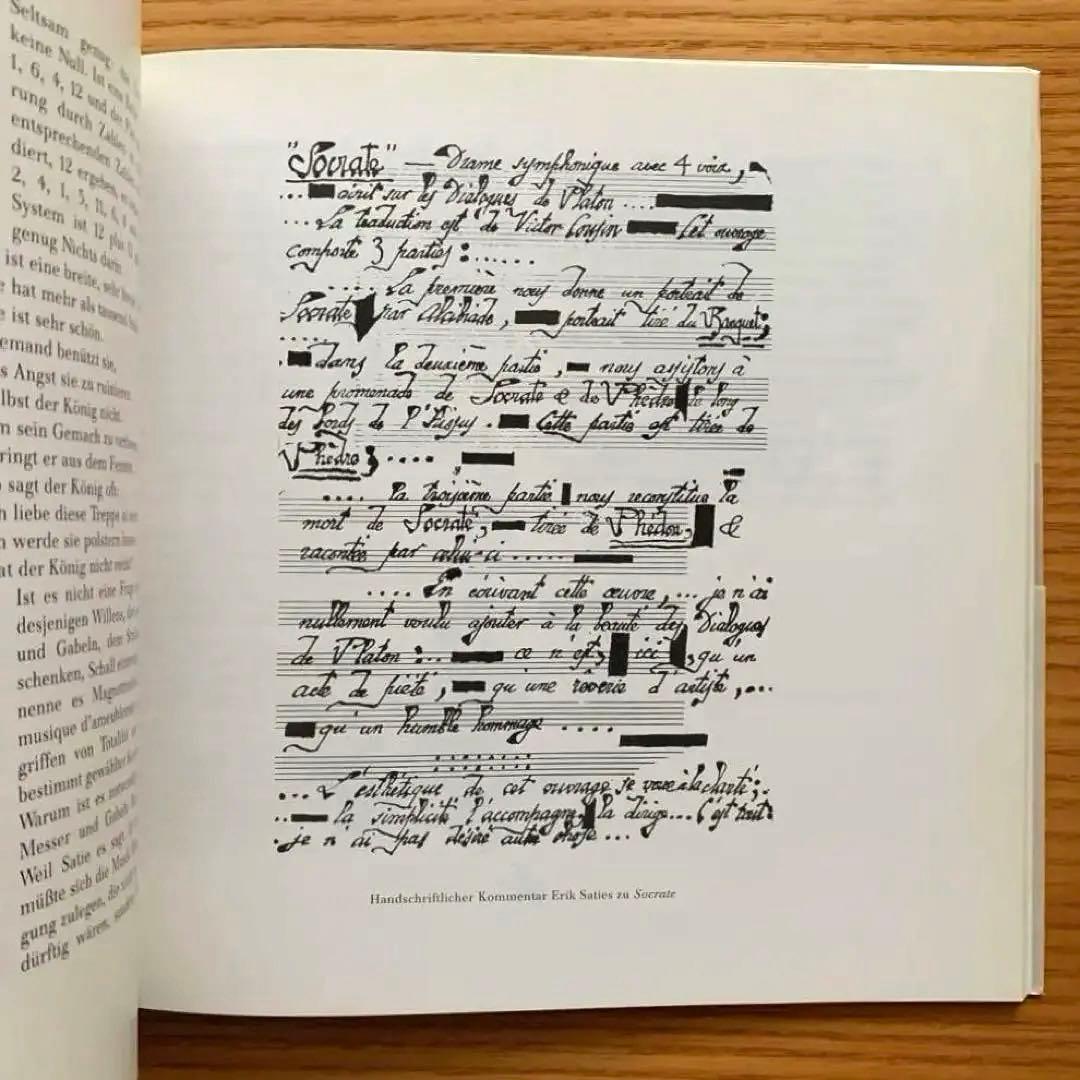 Seltsam genug:
keine Null. Ist eine
1, 6, 4, 12 und die
rung durch Zahlen
entsprechenden Zahlen
diert, 12 ergeben,
2, 4, 1, 5, 11, 6,
System ist 12 plus
genug Nichts darin
ist eine breite, sehr
hat mehr als tausend
ist sehr schön.
emand benützt sie,
s Angst sie zu ruinieren.
lbst der König nicht.
m sein Gemach zu
ringt er aus dem
sagt der König oft:
h liebe diese Treppe
h werde sie polstern
at der König nicht
Ist es nicht eine Frage
desjenigen Willens,
und Gabeln, dem
schenken, Schall
nenne es
musique d'ameublement
griffen von Totalität
bestimmt gewählter
Warum ist es
Messer und Gabeln
Weil Satie es sagt.
müßte sich die Musik
gung zulegen, die
dürftig wären,
"Socrate" — Drame symphonique avec 4 voix,
... écrit sur les Dialogues de Platon ....
... La traduction est de Victor Cousin Cet ouvrage
comporte 3 parties :......
..... La première nous donne un portrait de
Socrate par Alcibiade, portrait tiré du Banquet;
..... dans la deuxième partie, nous assistons à
une promenade de Socrate & de Phèdre le long
des bords de l'Ilissus. Cette partie est tirée de
Phèdre; ....
.... la troisième partie nous reconstitue la
mort de Socrate, tirée de Phédon, &
racontée par celui-ci ......
.... En écrivant cette œuvre, ... je n'ai
nullement voulu ajouter à la beauté des Dialogues
de Platon :.. ce n'est, ici, qu'un
acte de piété, qu'une rêverie d'artiste, ...
qu'un humble hommage ....
... L'esthétique de cet ouvrage je voue à la clarté;
.. la simplicité l'accompagne, la dirige... C'est tout:
. je n'ai pas désiré autre chose ...
Handschriftlicher Kommentar Erik Saties zu Socrate